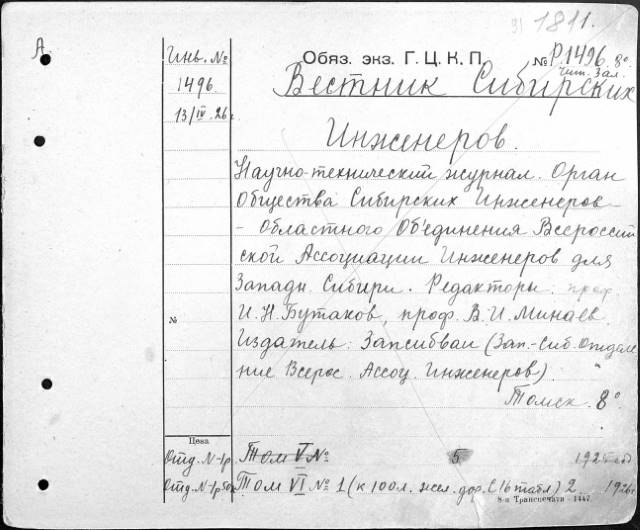 1811.
А.
Инв. №
1496
13/IV 26
Обяз. экз. Г. Ц. К. П. № Р.1496 8°
Чит. Зал.
Вестник Сибирских
Инженеров.
Научно-технический журнал. Орган
Общества Сибирских Инженеров-
- Областного Об'единения Всероссий
ской Ассоциации Инженеров для
Западн. Сибири. Редакторы: проф.
И. Н. Бутаков, проф. В. И. Минаев.
№
Издатель: Запсибваи (Зап.-Сиб. Отделе
ние Всерос. Ассоц. Инженеров).
Томск. 8°
Цена
Отд. N-1р. Том V № 5 1925
Отд. N-1р 50к Том VI № 1 (к 100 л. жел. дор. с 16 табл) 2 1926
8-я Транспечати - 1447